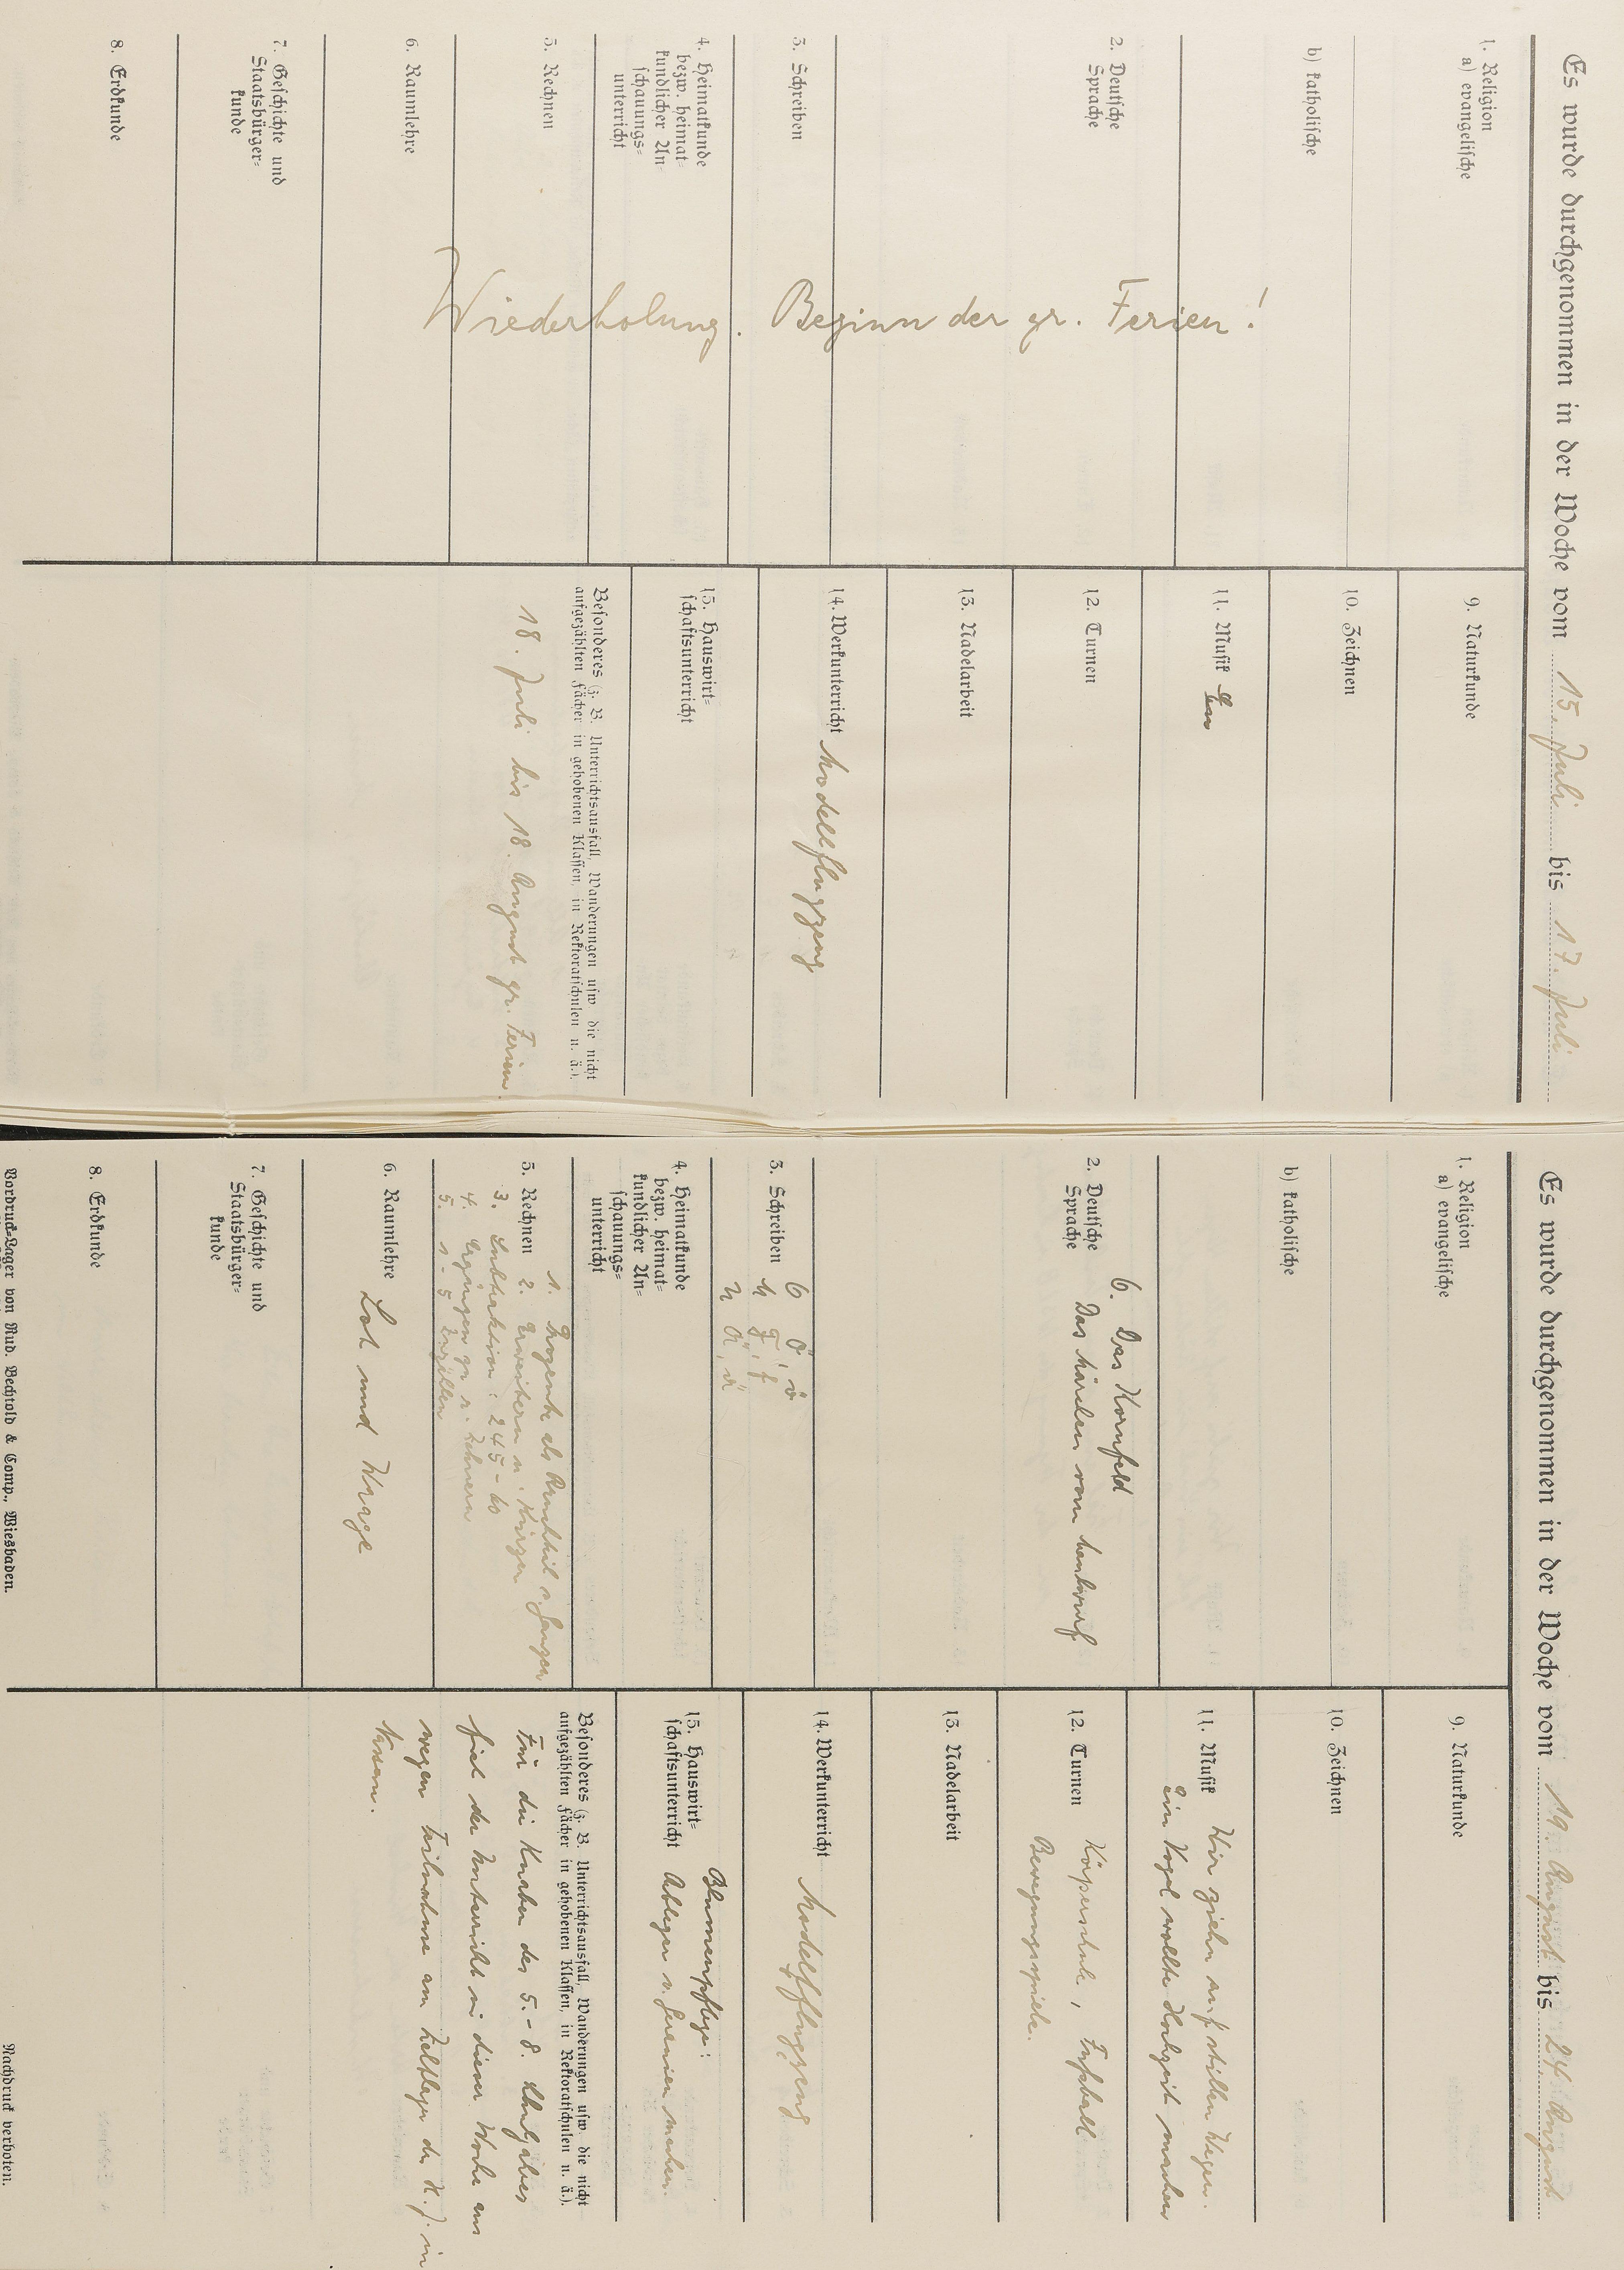 Es wurde durchgenommen in der Woche vom 15. Juli bis 17. Juli
1. Religion
a) evangelische
b) katholische
2. Deutsche
Sprache
3. Schreiben
4. Heimatkunde
bezw. heimat-
kundlicher An-
schauungs-
unterricht
5. Rechnen
6. Raumlehre
7. Geschichte und
Staatsbürger-
kunde
8. Erdkunde
Wiederholung. Beginn der gr. Ferien!
9. Naturkunde
10. Zeichnen
11. Musik
12. Turnen
13. Nadelarbeit
14. Werkunterricht Modellflugzeug
15. Hauswirt-
schaftsunterricht
Besonderes (z. B. Unterrichtsausfall, Wanderungen usw. die nicht
aufgezählten Fächer in gehobenen Klassen, in Rektoratschulen u. ä.).
18. Juli bis 18. August gr. Ferien.
Es wurde durchgenommen in der Woche vom 19. August bis 24. August
1. Religion
a) evangelische
b) katholische
2. Deutsche
Sprache
6. Das Kornfeld
Das Märchen vom
3. Schreiben
6 Ö, ö
4 F, f
2 Ä, ä
4. Heimatkunde
bezw. heimat-
kundlicher An-
schauungs-
unterricht
5. Rechnen
1. Prozente als Bruchteil v. Ganzen
2. Erweitern u. Kürzen
3. Subtraktion: 245 - 60
4. Ergänzen zu r. Zehnern
5. 1 - 5 erzählen
6. Raumlehre Lot und Wage
7. Geschichte und
Staatsbürger-
kunde
8. Erdkunde
9. Naturkunde
10. Zeichnen
11. Musik Wir ziehn auf stillen Wegen.
Ein Vogel wollte Hochzeit machen
12. Turnen Körperschule, Fußball
Bewegungsspiele.
13. Nadelarbeit
14. Werkunterricht Modellflugzeug
15. Hauswirt-
schaftsunterricht
Blumenpflege:
Ableger v. Geranien machen.
Besonderes (z. B. Unterrichtsausfall, Wanderungen usw. die nicht
aufgezählten Fächer in gehobenen Klassen, in Rektoratschulen u. ä.).
Für die Knaben des 5. - 8. Schuljahres
fiel der Unterricht in dieser Woche aus
wegen Teilnahme am Zeltlager der H. J. in
Vordruck-Lager von Rud. Bechtold & Comp., Wiesbaden.
Nachdruck verboten.